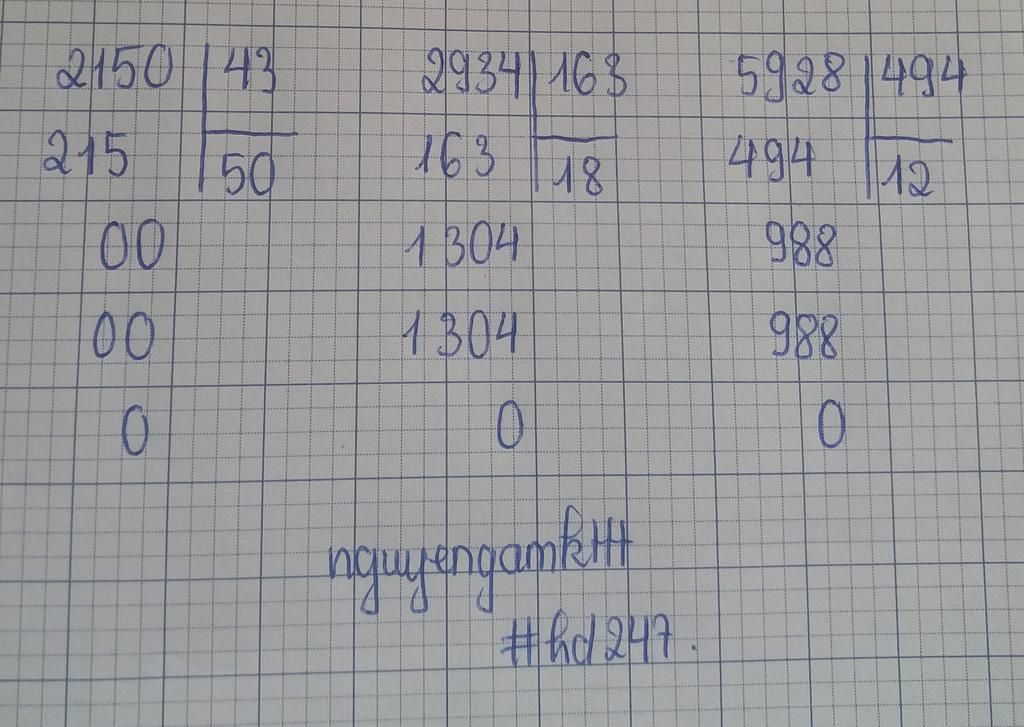 2150 43 2934 163 5928 494
215 50 163 18 494 12
00 1304 988
00 1304 988
0 0 0
#hd247.